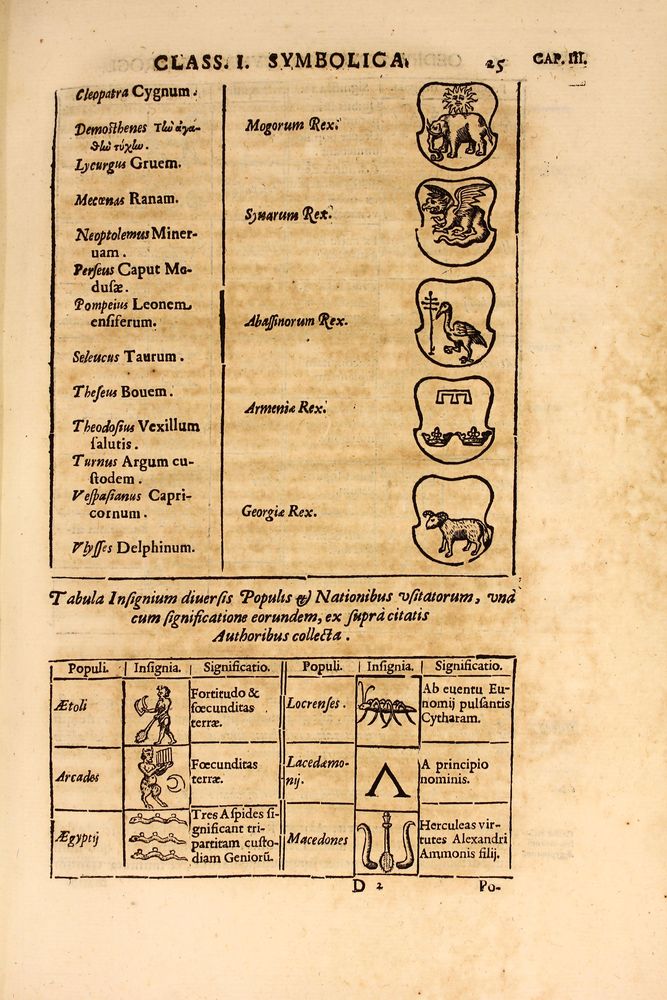 CLASS. I. SYMBOLICA. 25 CAP. III.
Cleopatra Cygnum.
Demosthenes τῶ ἀγα-
θῶ τύχω.
Lycurgus Gruem.
Mecœnas Ranam.
Neoptolemus Miner-
uam.
Perseus Caput Me-
dusæ.
Pompeius Leonem
ensiferum.
Seleucus Taurum.
Theseus Bouem.
Theodosius Vexillum
salutis.
Turnus Argum cu-
stodem.
Vespasianus Capri-
cornum.
Vlysses Delphinum.
Mogorum Rex.
Synarum Rex.
Abassinorum Rex.
Armeniæ Rex.
Georgiæ Rex.
Tabula Insignium diuersis Populis & Nationibus vsitatorum, vnà
cum significatione eorundem, ex suprà citatis
Authoribus collecta.
Populi. Insignia. Significatio. Populi. Insignia. Significatio.
Ætoli
Fortitudo &
fœcunditas
terræ.
Locrenses.
Ab euentu Eu-
nomij pulsantis
Cytharam.
Arcades
Fœcunditas
terræ.
Lacedæmo-
nij.
Λ
A principio
nominis.
Ægyptij
Tres Aspides si-
gnificant tri-
partitam custo-
diam Geniorū.
Macedones
Herculeas vir-
tutes Alexandri
Ammonis filij.
D 2 Po-